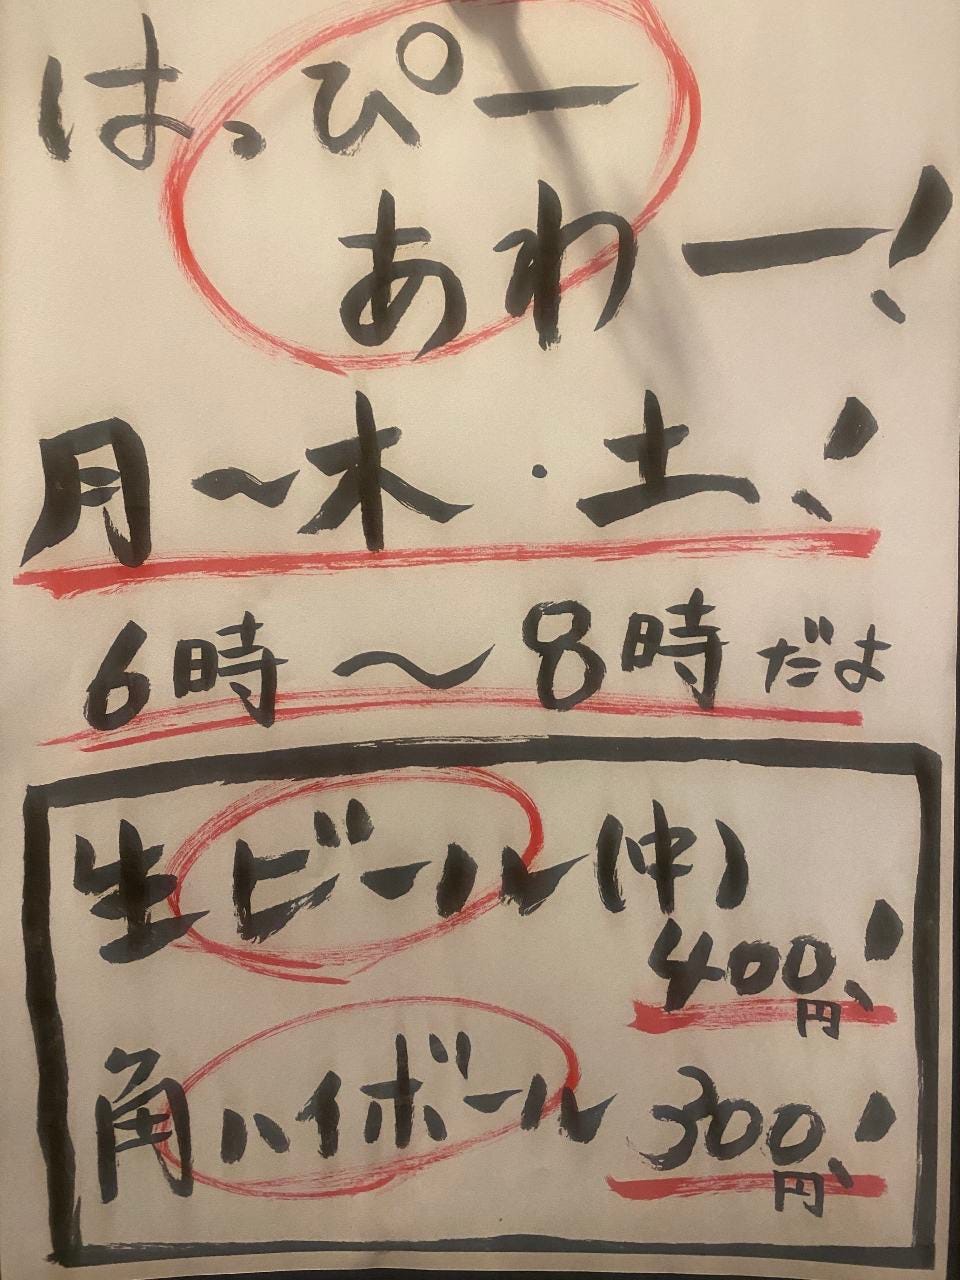 はっぴー
あわー!
月〜木・土!
6時〜8時だよ
生ビール(中)
400円!
角ハイボール 300円!